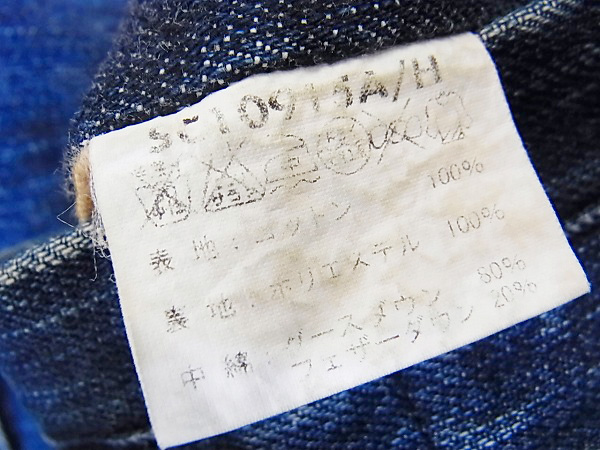 表地:コットン 100%
表地:ポリエステル 100%
中綿:グースダウン 80%
フェザーダウン 20%